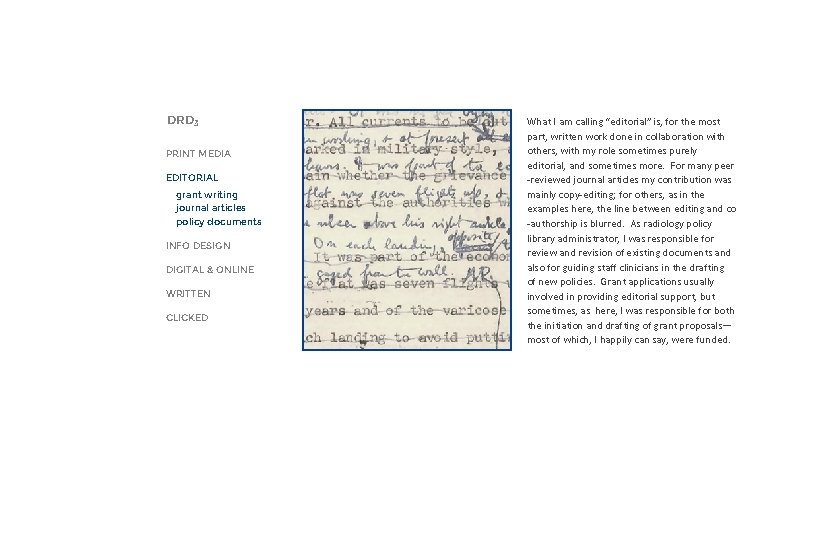 DRD3
PRINT MEDIA
EDITORIAL
grant writing
journal articles
policy documents
INFO DESIGN
DIGITAL & ONLINE
WRITTEN
CLICKED
r. All currents to be
arked in military style,
ain whether the grievance
flat was seven flights up, &
against the authorities w
above his right ankle
opposite
On each landing,
It was part of the econo
gazed from the wall.
e flat was seven flights
years and of the varicose
ch landing to avoid putti
What I am calling “editorial” is, for the most
part, written work done in collaboration with
others, with my role sometimes purely
editorial, and sometimes more.  For many peer
-reviewed journal articles my contribution was
mainly copy-editing; for others, as in the
examples here, the line between editing and co
-authorship is blurred.  As radiology policy
library administrator, I was responsible for
review and revision of existing documents and
also for guiding staff clinicians in the drafting
of new policies.  Grant applications usually
involved in providing editorial support, but
sometimes, as here, I was responsible for both
the initiation and drafting of grant proposals—
most of which, I happily can say, were funded.